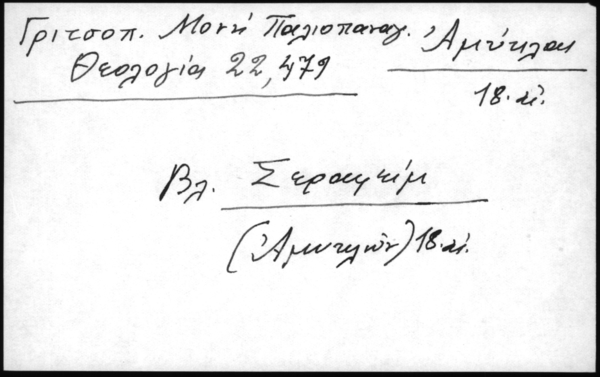 Γριτσοπ. Μονή Παλιοπαναγ.
Θεολογία 22,479
Ἀμύκλαι
18. αἰ.
Βλ. Σεραφείμ
(Ἀμυκλῶν) 18. αἰ.